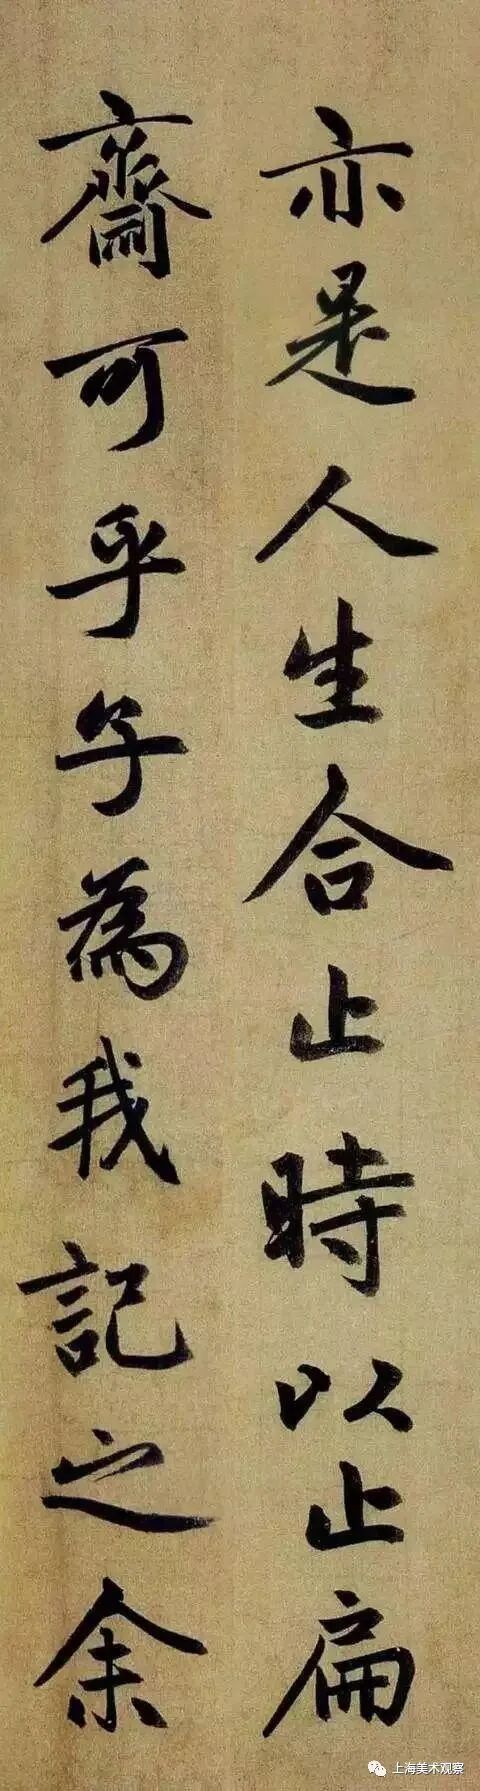 亦是人生合止時以止扁
齋可乎予為我記之余
上海美术观察